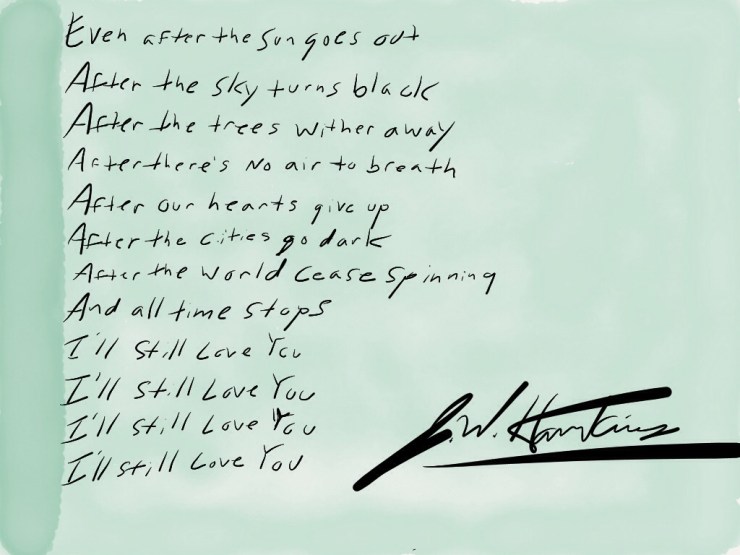 Even after the Sun goes out
After the sky turns black
After the trees wither away
After there's No air to breath
After our hearts give up
After the cities go dark
After the World Cease Spinning
And all time stops
I'll Still Love You
I'll Still Love You
I'll Still Love You
I'll still Love You
J.W. Hawkins